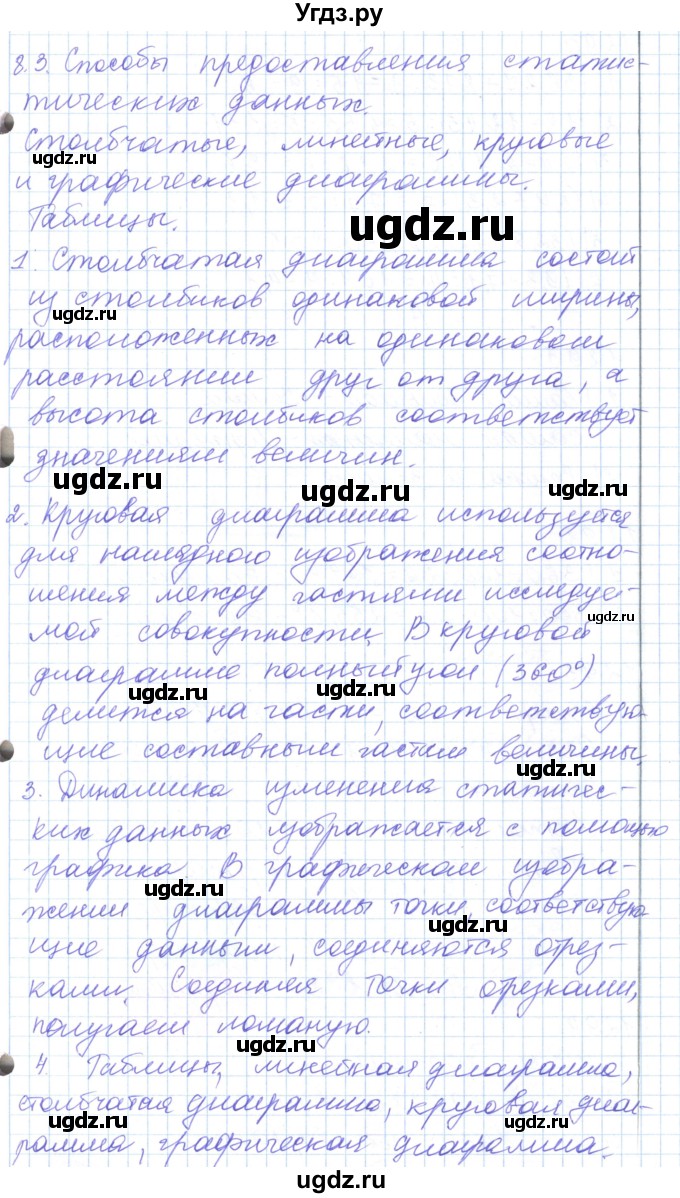 Угдз.ру
8.3. Способы предоставления статис-
тических данных.
Столбчатые, линейные, круговые
и графические диаграммы.
Таблицы.
1. Столбчатая диаграмма состоит
из столбиков одинаковой ширины,
расположенных на одинаковом
расстоянии друг от друга, а
высота столбиков соответствует
значениям величин.
2. Круговая диаграмма используется
для наглядного изображения соотно-
шения между частями исследуе-
мой совокупности. В круговой
диаграмме полный угол (360°)
делится на части, соответствую-
щие составным частям величины.
3. Динамика изменения статичес-
ких данных изображается с помощью
графика. В графическом изобра-
жении диаграммы точки, соответствую-
щие данным, соединяются отрез-
ками. Соединяя точки отрезками,
получаем ломаную.
4. Таблицы, линейная диаграмма,
столбчатая диаграмма, круговая диаг-
рамма, графическая диаграмма.
ugdz.ru
ugdz.ru
ugdz.ru
ugdz.ru
ugdz.ru
ugdz.ru
ugdz.ru
ugdz.ru
ugdz.ru
ugdz.ru
ugdz.ru
ugdz.ru
ugdz.ru
ugdz.ru